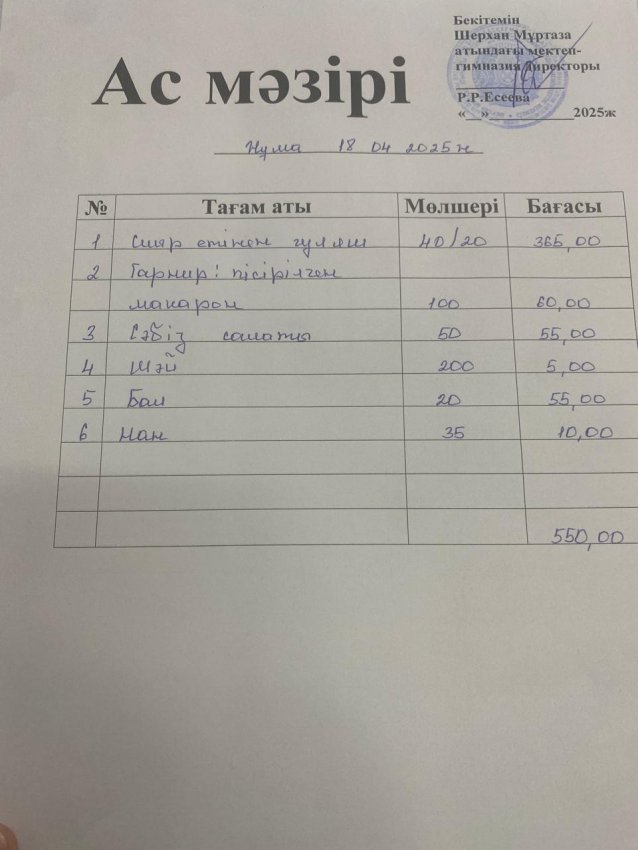 Бекітемін
Шерхан Мұртаза
атындағы мектеп-
гимназия директоры
Р.Р.Есеева
«__»____________2025ж
Ас мәзірі
Жұма 18 04 2025ж
№ Тағам аты Мөлшері Бағасы
1 Сиыр етінен гуляш 40/20 365,00
2 Гарнир: пісірілген
макарон 100 60,00
3 Сәбіз салаты 50 55,00
4 Шәй 200 5,00
5 Бал 20 55,00
6 Нан 35 10,00
550,00